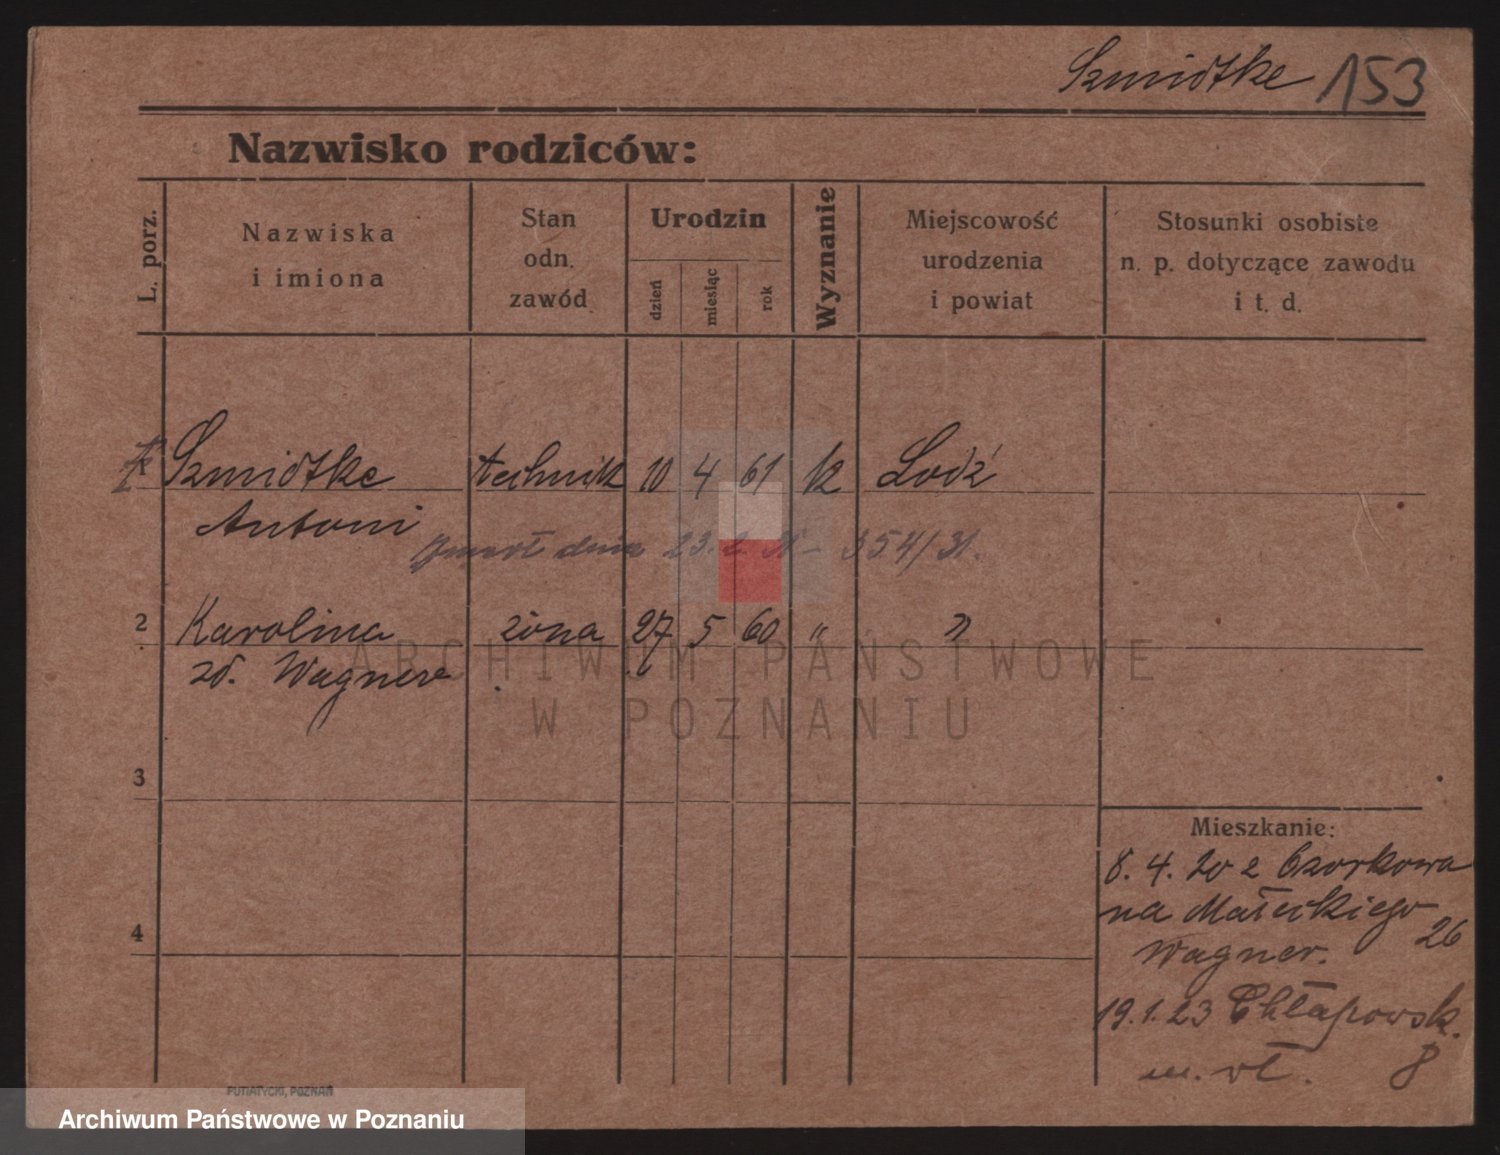 Szmidtke 153
Nazwisko rodziców:
L. porz.
Nazwiska
i imiona
Stan
odn.
zawód
Urodzin
dzień
miesiąc
rok
Wyznanie
Miejscowość
urodzenia
i powiat
Stosunki osobiste
n. p. dotyczące zawodu
i t. d.
Szmidtke technik 10 4 61 k Lodź
Antoni
zmarł dnia 23. 2. N 354/31.
2 Karolina żona 27 5 60 " "
zd. Wagner
3
4
Mieszkanie:
8. 4. 20 z Czorkowa
na Małeckiego
26
Wagner.
19.1.23 Chłapowsk.
8
m. wł.
PUTIATYCKI, POZNAŃ
ARCHIWUM PAŃSTWOWE
W POZNANIU
Archiwum Państwowe w Poznaniu